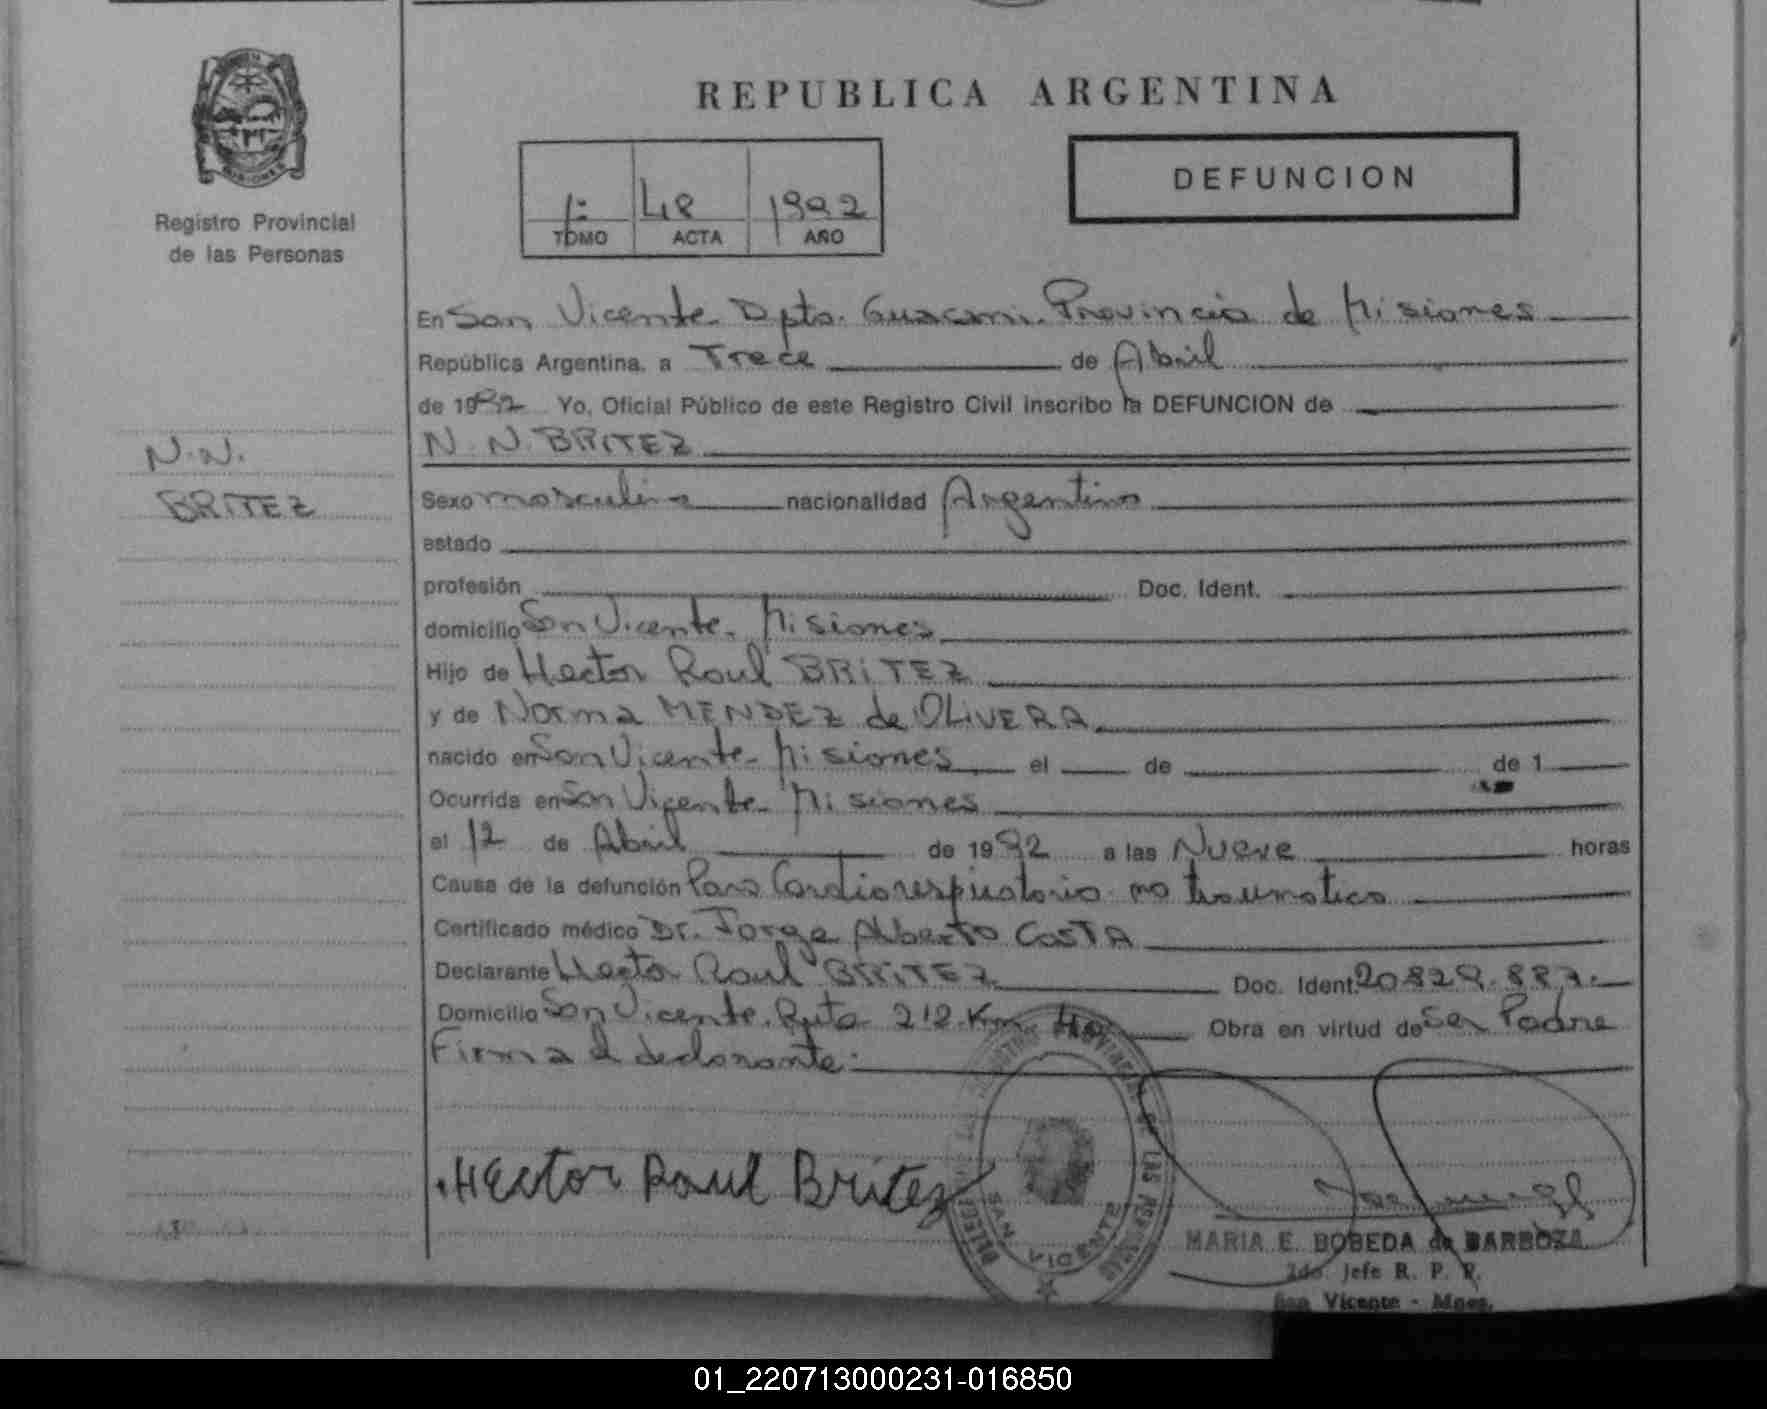 REPUBLICA ARGENTINA
MISIONES
Registro Provincial
de las Personas
1: 48 1992
TOMO ACTA AÑO
DEFUNCION
En San Vicente Dpto. Guarani. Provincia de Misiones
República Argentina, a Trece de Abril
de 1992 Yo, Oficial Público de este Registro Civil inscribo la DEFUNCION de
N. N. BRITEZ
N.N.
BRITEZ
Sexo masculino nacionalidad Argentino
estado
profesión Doc. Ident.
domicilio San Vicente. Misiones
Hijo de Hector Raul BRITEZ
y de Norma MENDEZ de OLIVERA
nacido en San Vicente. Misiones el de de 1
Ocurrida en San Vicente Misiones
el 12 de Abril de 1992 a las Nueve horas
Causa de la defunción Paro Cardiorespiratorio no traumatico
Certificado médico Dr. Jorge Alberto COSTA
Declarante Hector Raul BRITEZ Doc. Ident. 20.829.887.
Domicilio San Vicente. Ruta 212. Km Obra en virtud de Ser Padre
Firma el declarante:
Hector Raul Britez
SAN VICENTE
MARIA E. BOBEDA de BARBOZA
2do. Jefe R. P. P.
San Vicente - Mnes.
01_220713000231-016850